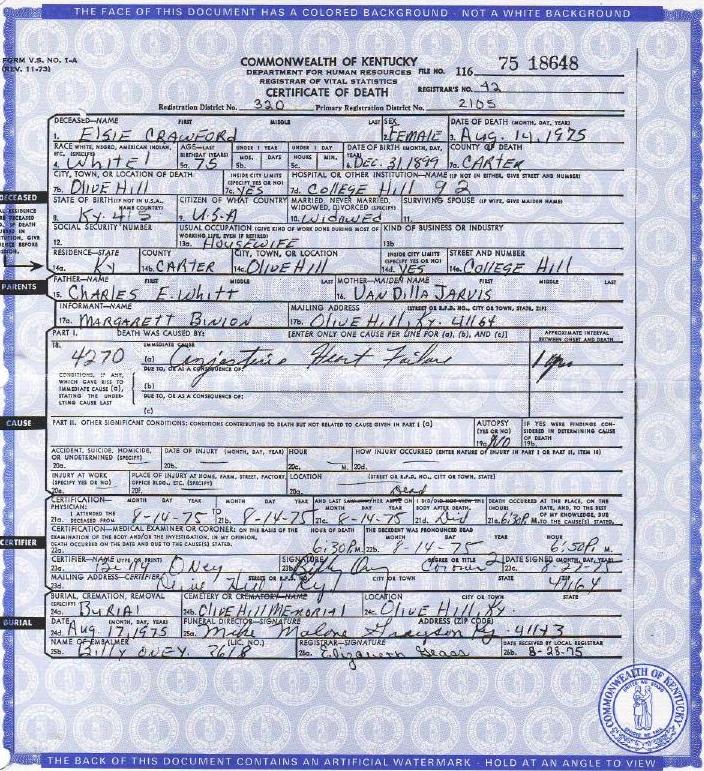 THE FACE OF THIS DOCUMENT HAS A COLORED BACKGROUND - NOT A WHITE BACKGROUND
FORM V.S. NO. 1-A
(REV. 11-73)
COMMONWEALTH OF KENTUCKY
DEPARTMENT FOR HUMAN RESOURCES
FILE NO. 116 75 18648
REGISTRAR OF VITAL STATISTICS
CERTIFICATE OF DEATH
REGISTRAR'S NO. 42
Registration District No. 320 Primary Registration District No. 2105
DECEASED—NAME FIRST MIDDLE LAST SEX DATE OF DEATH (MONTH, DAY, YEAR)
1. Elsie Crawford 2. Female 3. Aug. 14, 1975
RACE WHITE, NEGRO, AMERICAN INDIAN, ETC. (SPECIFY) AGE—LAST BIRTHDAY (YEARS) UNDER 1 YEAR UNDER 1 DAY DATE OF BIRTH (MONTH, DAY, YEAR) COUNTY OF DEATH
MOS. DAYS HOURS MIN.
4. White 5a. 75 5b. 5c. 6. Dec. 31, 1899 7a. Carter
CITY, TOWN, OR LOCATION OF DEATH INSIDE CITY LIMITS (SPECIFY YES OR NO) HOSPITAL OR OTHER INSTITUTION—NAME (IF NOT IN EITHER, GIVE STREET AND NUMBER)
7b. Olive Hill 7c. Yes 7d. College Hill 92
DECEASED
STATE OF BIRTH (IF NOT IN U.S.A., NAME COUNTRY) CITIZEN OF WHAT COUNTRY MARRIED, NEVER MARRIED, WIDOWED, DIVORCED (SPECIFY) SURVIVING SPOUSE (IF WIFE, GIVE MAIDEN NAME)
8. Ky. 9. U.S.A 10. Widowed 11.
SOCIAL SECURITY NUMBER USUAL OCCUPATION (GIVE KIND OF WORK DONE DURING MOST OF WORKING LIFE, EVEN IF RETIRED) KIND OF BUSINESS OR INDUSTRY
12. 13a. Housewife 13b.
RESIDENCE—STATE COUNTY CITY, TOWN, OR LOCATION INSIDE CITY LIMITS (SPECIFY YES OR NO) STREET AND NUMBER
14a. Ky 14b. Carter 14c. Olive Hill 14d. Yes 14e. College Hill
PARENTS
FATHER—NAME FIRST MIDDLE LAST MOTHER—MAIDEN NAME FIRST MIDDLE LAST
15. Charles E. Whitt 16. Van Dilla Jarvis
INFORMANT—NAME MAILING ADDRESS (STREET OR R.F.D. NO., CITY OR TOWN, STATE, ZIP)
17a. Margarett Binion 17b. Olive Hill, Ky. 41164
PART I. DEATH WAS CAUSED BY: [ENTER ONLY ONE CAUSE PER LINE FOR (a), (b), AND (c)] APPROXIMATE INTERVAL BETWEEN ONSET AND DEATH
18. IMMEDIATE CAUSE
4270 (a) Congestive Heart Failure
DUE TO, OR AS A CONSEQUENCE OF:
CONDITIONS, IF ANY, WHICH GAVE RISE TO IMMEDIATE CAUSE (a), STATING THE UNDERLYING CAUSE LAST
(b)
DUE TO, OR AS A CONSEQUENCE OF:
(c)
CAUSE
PART II. OTHER SIGNIFICANT CONDITIONS: CONDITIONS CONTRIBUTING TO DEATH BUT NOT RELATED TO CAUSE GIVEN IN PART I (a) AUTOPSY (YES OR NO) IF YES WERE FINDINGS CONSIDERED IN DETERMINING CAUSE OF DEATH
19a. No 19b.
ACCIDENT, SUICIDE, HOMICIDE, OR UNDETERMINED (SPECIFY) DATE OF INJURY (MONTH, DAY, YEAR) HOUR HOW INJURY OCCURRED (ENTER NATURE OF INJURY IN PART I OR PART II, ITEM 18)
20a. 20b. 20c. M. 20d.
INJURY AT WORK (SPECIFY YES OR NO) PLACE OF INJURY AT HOME, FARM, STREET, FACTORY, OFFICE BLDG., ETC. (SPECIFY) LOCATION (STREET OR R.F.D. NO., CITY OR TOWN, STATE)
20e. 20f. Dead
CERTIFIER
CERTIFICATION— MONTH DAY YEAR MONTH DAY YEAR AND LAST SAW HIM/HER ALIVE ON I DID/DID NOT VIEW THE BODY AFTER DEATH. DEATH OCCURRED AT THE PLACE, ON THE DATE, AND, TO THE BEST OF MY KNOWLEDGE, DUE TO THE CAUSE(S) STATED.
PHYSICIAN: I ATTENDED THE DECEASED FROM
21a. 8-14-75 TO 21b. 8-14-75 21c. 8-14-75 21d. Did 21e. 6:30P.M.
CERTIFICATION—MEDICAL EXAMINER OR CORONER: ON THE BASIS OF THE EXAMINATION OF THE BODY AND/OR THE INVESTIGATION, IN MY OPINION, DEATH OCCURRED ON THE DATE AND DUE TO THE CAUSE(S) STATED.
HOUR OF DEATH THE DECEDENT WAS PRONOUNCED DEAD MONTH DAY YEAR HOUR
22a. 6:30P.M. 22b. 8-14-75 6:50P.M.
CERTIFIER—NAME (TYPE OR PRINT) SIGNATURE DEGREE OR TITLE DATE SIGNED (MONTH, DAY, YEAR)
23a. Billy Oney 23b. Billy Oney Coroner 23c.
MAILING ADDRESS—CERTIFIER STREET OR R.F.D. NO. CITY OR TOWN STATE ZIP
23d. Olive Hill Ky 41164
BURIAL
BURIAL, CREMATION, REMOVAL (SPECIFY) CEMETERY OR CREMATORY—NAME LOCATION CITY OR TOWN STATE
24a. Burial 24b. Olive Hill Memorial 24c. Olive Hill, Ky.
DATE (MONTH, DAY, YEAR) FUNERAL DIRECTOR—SIGNATURE ADDRESS (ZIP CODE)
24d. Aug 17, 1975 25a. Mike Malone Grayson Ky 41143
NAME OF EMBALMER (LIC. NO.) REGISTRAR—SIGNATURE DATE RECEIVED BY LOCAL REGISTRAR
25b. Billy Oney 3618 26a. Elizabeth 26b. 8-28-75
COMMONWEALTH OF KENTUCKY
THE BACK OF THIS DOCUMENT CONTAINS AN ARTIFICIAL WATERMARK - HOLD AT AN ANGLE TO VIEW